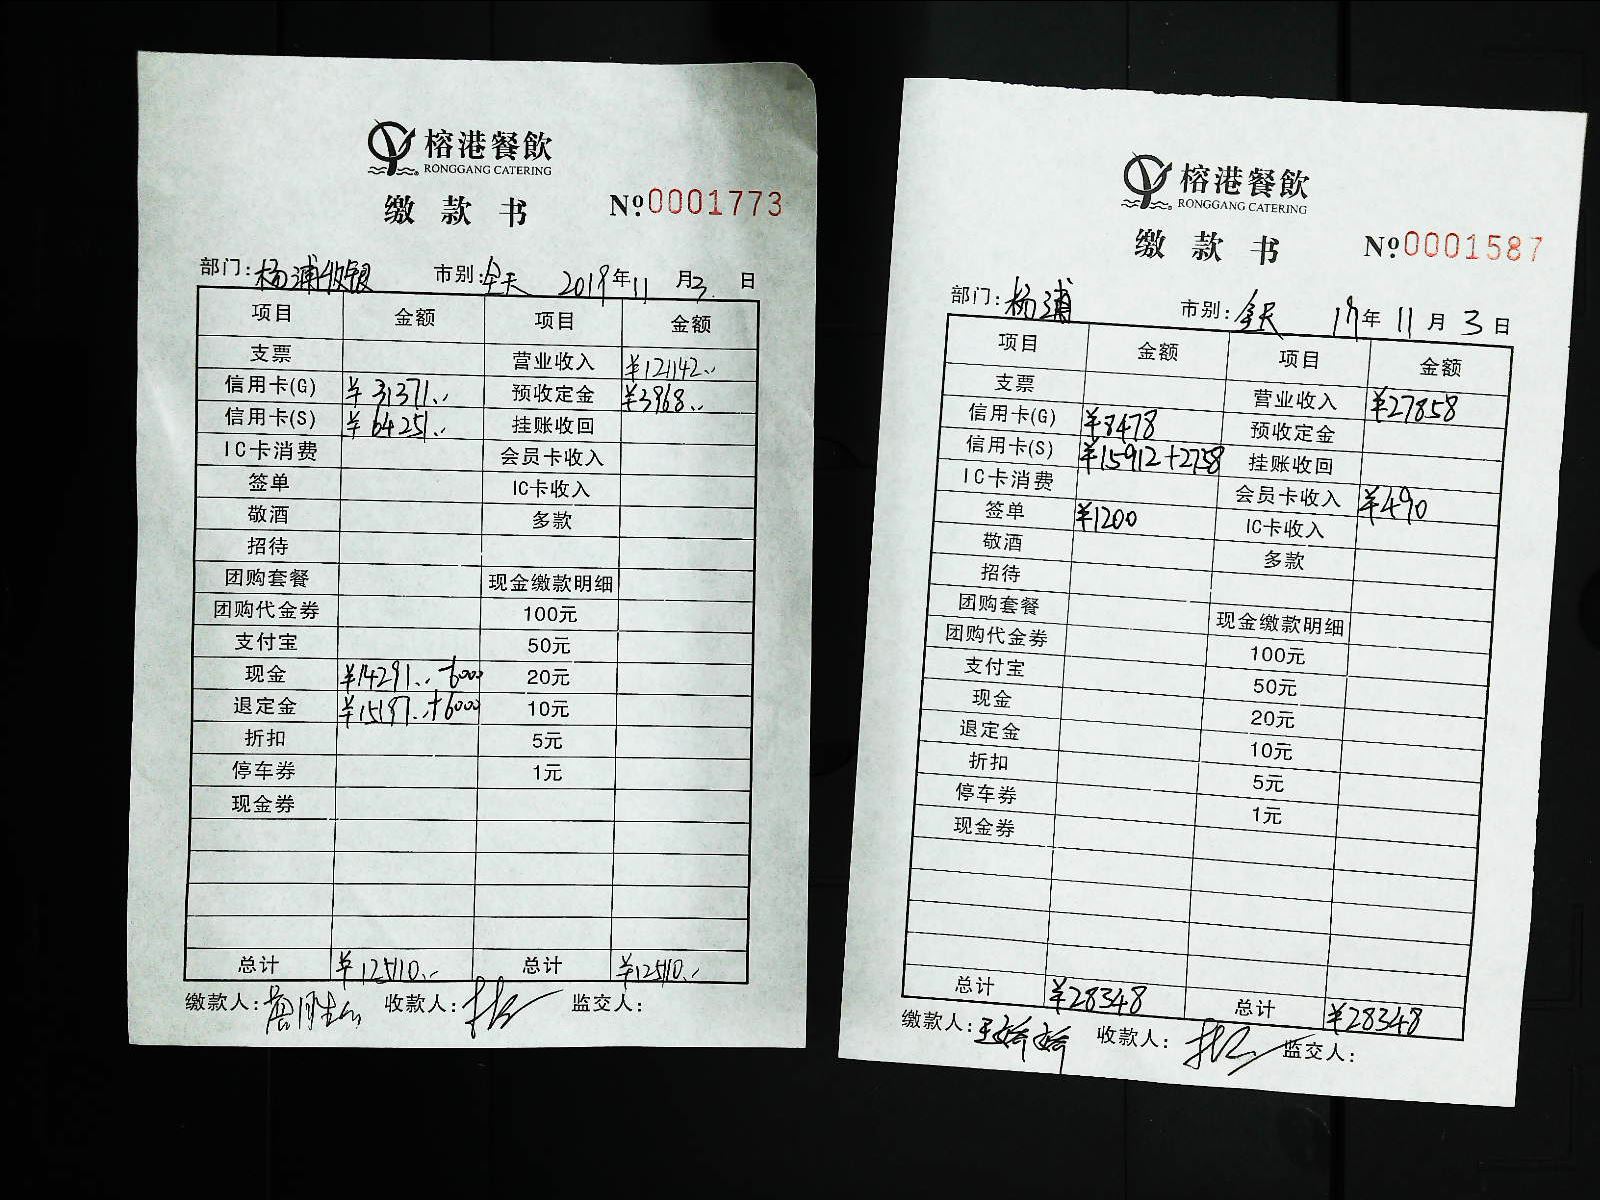 榕港餐飲
RONGGANG CATERING
缴款书 №0001773
部门:杨浦收银 市别:全天 2019年11月3日
项目 金额 项目 金额
支票 营业收入 ¥121142..
信用卡(G) ¥31371.. 预收定金 ¥3968..
信用卡(S) ¥64251.. 挂账收回
IC卡消费 会员卡收入
签单 IC卡收入
敬酒 多款
招待
团购套餐 现金缴款明细
团购代金券 100元
支付宝 50元
现金 ¥14291..-6000 20元
退定金 ¥15197..+6000 10元
折扣 5元
停车券 1元
现金券
总计 ¥125110.. 总计 ¥125110..
缴款人: 收款人: 监交人:
榕港餐飲
RONGGANG CATERING
缴款书 №0001587
部门:杨浦 市别:全天 19年11月3日
项目 金额 项目 金额
支票 营业收入 ¥27858
信用卡(G) ¥8478 预收定金
信用卡(S) ¥15912+2758 挂账收回
IC卡消费 会员卡收入 ¥490
签单 ¥1200 IC卡收入
敬酒 多款
招待
团购套餐 现金缴款明细
团购代金券 100元
支付宝 50元
现金 20元
退定金 10元
折扣 5元
停车券 1元
现金券
总计 ¥28348 总计 ¥28348
缴款人:王娇娇 收款人: 监交人: